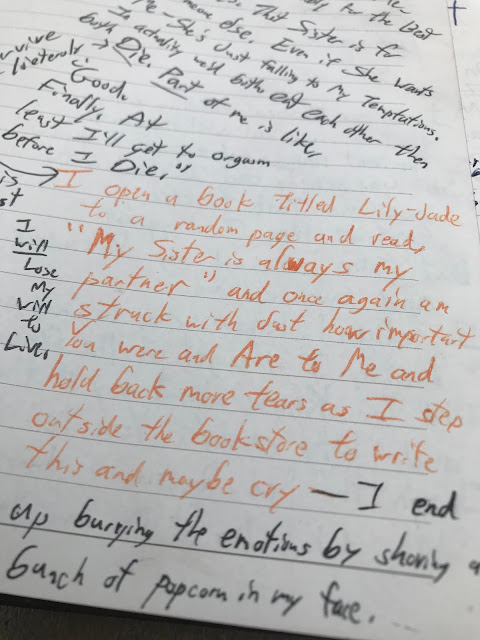 for the Best
This Sister is for
someone else. Even if She wants
me – She's Just falling to My Temptations.
In actuality we'll both eat each other then
both Die. Part of me is like,
Good.
Finally. At
least I'll get to orgasm
before I Die,"
I open a book titled Lily-Jade
to a random page and read,
"My Sister is always my
partner" and once again am
struck with Just how important
You were and Are to Me and
hold back more tears as I step
outside the bookstore to write
this and maybe cry — I end
up burying the emotions by shoving a
bunch of popcorn in my face. ...
I
will
Lose
My
will
to
Live,